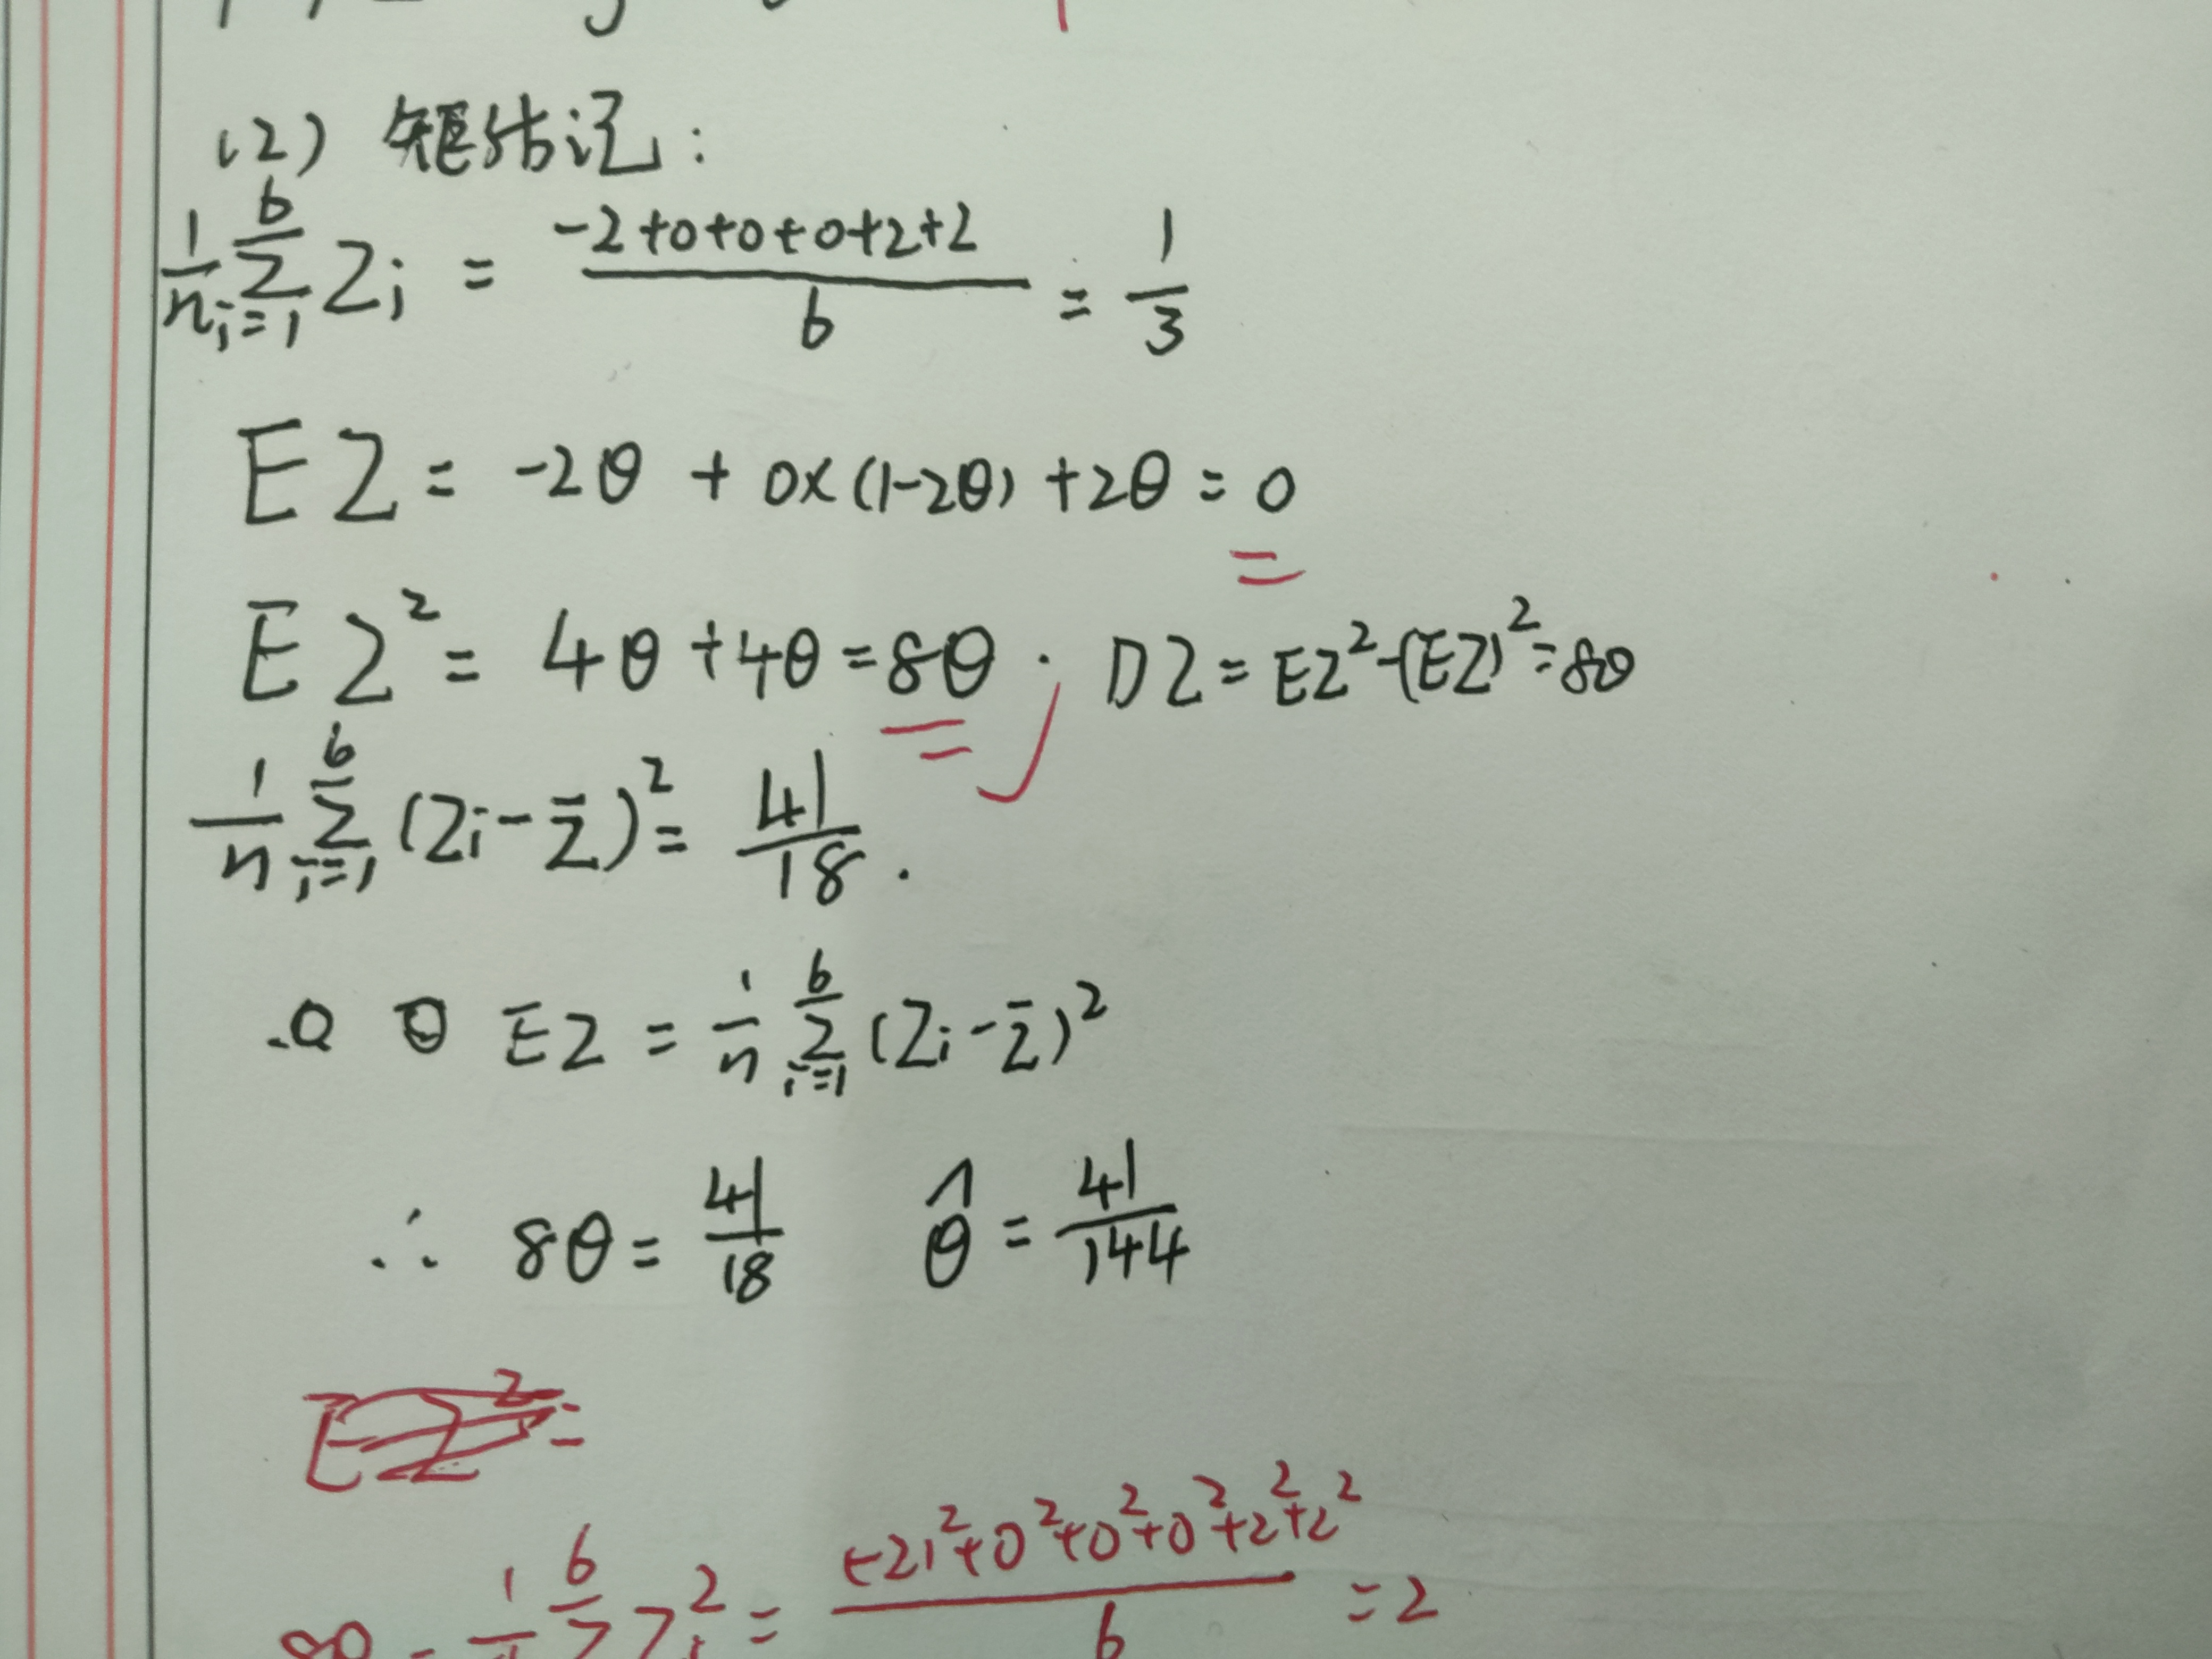 (2) 矩估记:
1/n ∑_{i=1}^{6} Z_i = (-2+0+0+0+2+2)/6 = 1/3
EZ = -2θ + 0×(1-2θ) + 2θ = 0
EZ² = 4θ + 4θ = 8θ . DZ = EZ² - (EZ)² = 8θ
1/n ∑_{i=1}^{6} (Z_i - Z̄)² = 41/18 .
EZ = 1/n ∑_{i=1}^{6} (Z_i - Z̄)²
∴ 8θ = 41/18 θ̂ = 41/144
8θ = 1/n ∑^{6} Z_i² = ((-2)²+0²+0²+0²+2²+2²)/6 = 2